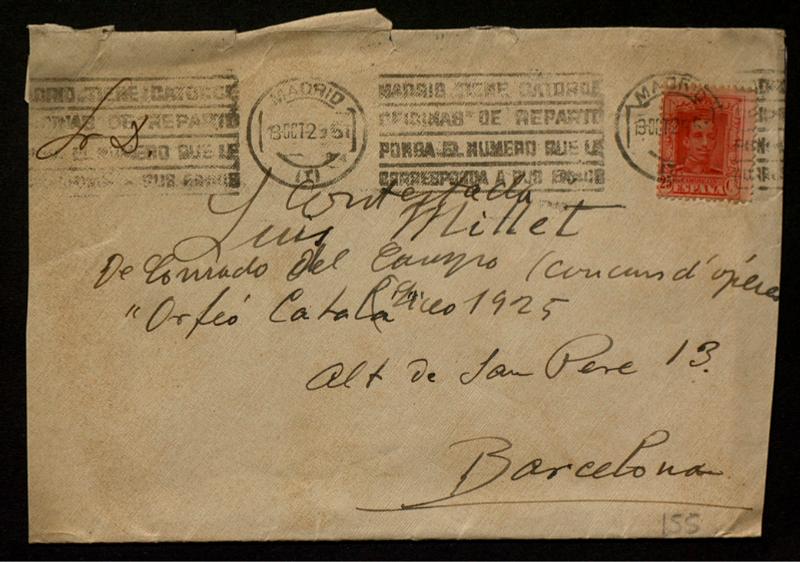 MADRID TIENE CATORCE
OFICINAS DE REPARTO
PONGA EL NUMERO QUE LE
CORRESPONDA A SUS ENVIOS
MADRID
13 OCT 25
(1)
MADRID TIENE CATORCE
OFICINAS DE REPARTO
PONGA EL NUMERO QUE LE
CORRESPONDA A SUS ENVIOS
MADRID
13 OCT 2
25 ESPAÑA Cs
Sr D.
Contestada
Luis Millet
De Conrado del Campo (concurs d'òperes
Liceo 1925
"Orfeó Català"
Alt de San Pere 13.
Barcelona
155